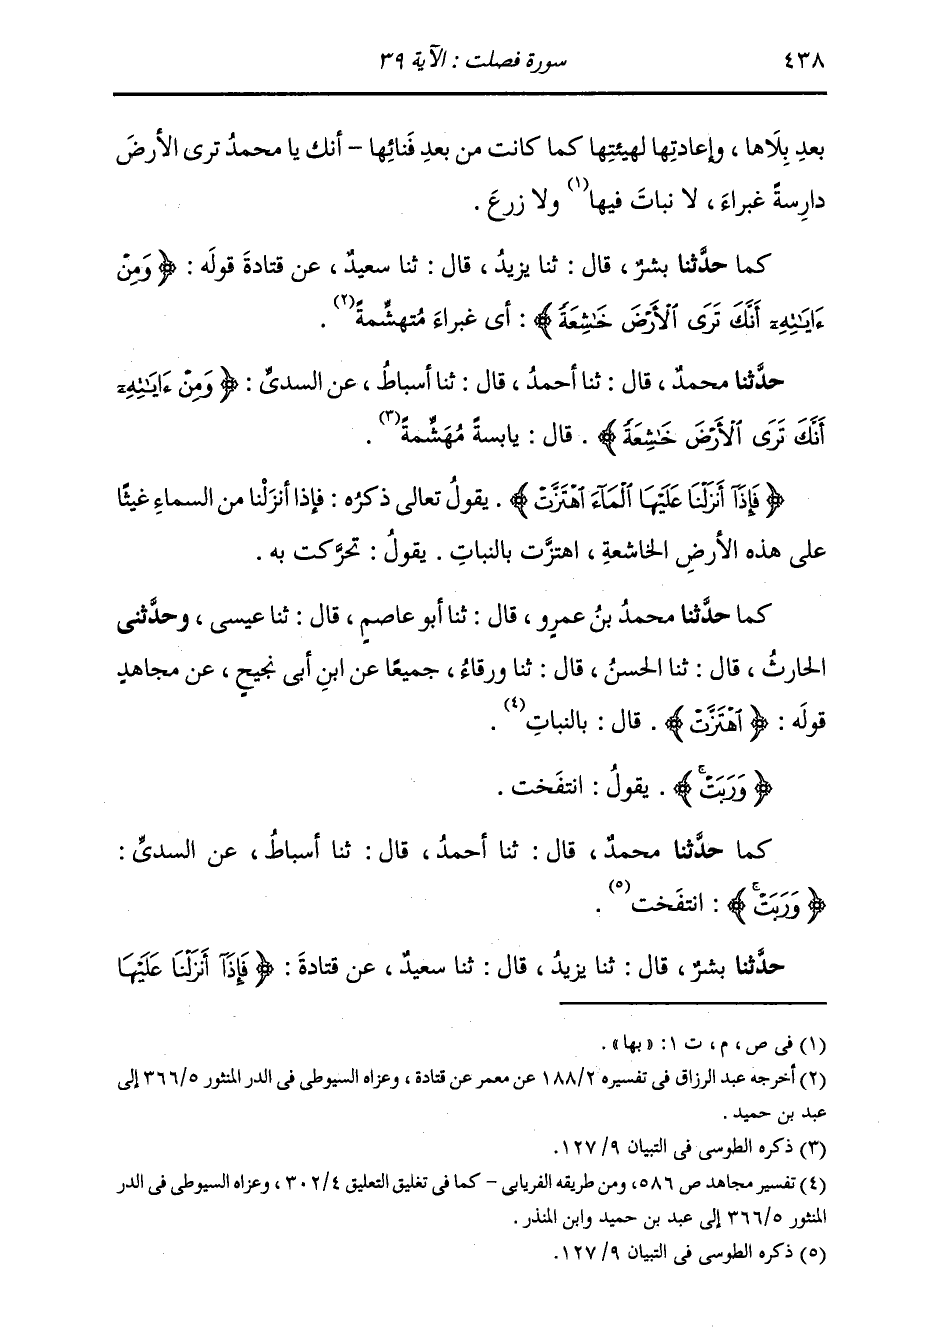 ٤٣٨
سورة فصلت : الآية ٣٩
بعدِ بِلَاها ، وإعادتِها لهيئتِها كما كانت من بعدِ فَنائِها – أنك يا محمدُ ترى الأرضَ
دارِسةً غبراءَ ، لا نباتَ فيها(١) ولا زرعَ .
كما حدَّثنا بشرٌ ، قال : ثنا يزيدُ ، قال : ثنا سعيدٌ ، عن قتادةَ قولَه : ﴿ وَمِنْ
ءَايَـٰتِهِۦٓ أَنَّكَ تَرَى ٱلْأَرْضَ خَـٰشِعَةً ﴾ : أى غبراءَ مُتهشِّمةً(٢) .
حدَّثنا محمدٌ ، قال : ثنا أحمدُ ، قال : ثنا أسباطُ ، عن السدىِّ : ﴿ وَمِنْ ءَايَـٰتِهِۦٓ
أَنَّكَ تَرَى ٱلْأَرْضَ خَـٰشِعَةً ﴾ . قال : يابسةً مُهَشَّمةً(٣) .
﴿ فَإِذَآ أَنزَلْنَا عَلَيْهَا ٱلْمَآءَ ٱهْتَزَّتْ ﴾ . يقولُ تعالى ذكرُه : فإذا أنزَلْنا من السماءِ غيثًا
على هذه الأرضِ الخاشعةِ ، اهتزَّت بالنباتِ . يقولُ : تحرَّكت به .
كما حدَّثنا محمدُ بنُ عمرٍو ، قال : ثنا أبو عاصمٍ ، قال : ثنا عيسى ، وحدَّثنى
الحارثُ ، قال : ثنا الحسنُ ، قال : ثنا ورقاءُ ، جميعًا عن ابنِ أبى نجيحٍ ، عن مجاهدٍ
قولَه : ﴿ ٱهْتَزَّتْ ﴾ . قال : بالنباتِ(٤) .
﴿ وَرَبَتْۚ ﴾ . يقولُ : انتفَخت .
كما حدَّثنا محمدٌ ، قال : ثنا أحمدُ ، قال : ثنا أسباطُ ، عن السدىِّ :
﴿ وَرَبَتْۚ ﴾ : انتفَخت(٥) .
حدَّثنا بشرٌ ، قال : ثنا يزيدُ ، قال : ثنا سعيدٌ ، عن قتادةَ : ﴿ فَإِذَآ أَنزَلْنَا عَلَيْهَا
(١) فى ص ، م ، ت ١ : « بها » .
(٢) أخرجه عبد الرزاق فى تفسيره ١٨٨/٢ عن معمر عن قتادة ، وعزاه السيوطى فى الدر المنثور ٣٦٦/٥ إلى
عبد بن حميد .
(٣) ذكره الطوسى فى التبيان ١٢٧/٩ .
(٤) تفسير مجاهد ص ٥٨٦، ومن طريقه الفريابى – كما فى تغليق التعليق ٣٠٢/٤ ، وعزاه السيوطى فى الدر
المنثور ٣٦٦/٥ إلى عبد بن حميد وابن المنذر .
(٥) ذكره الطوسى فى التبيان ١٢٧/٩ .